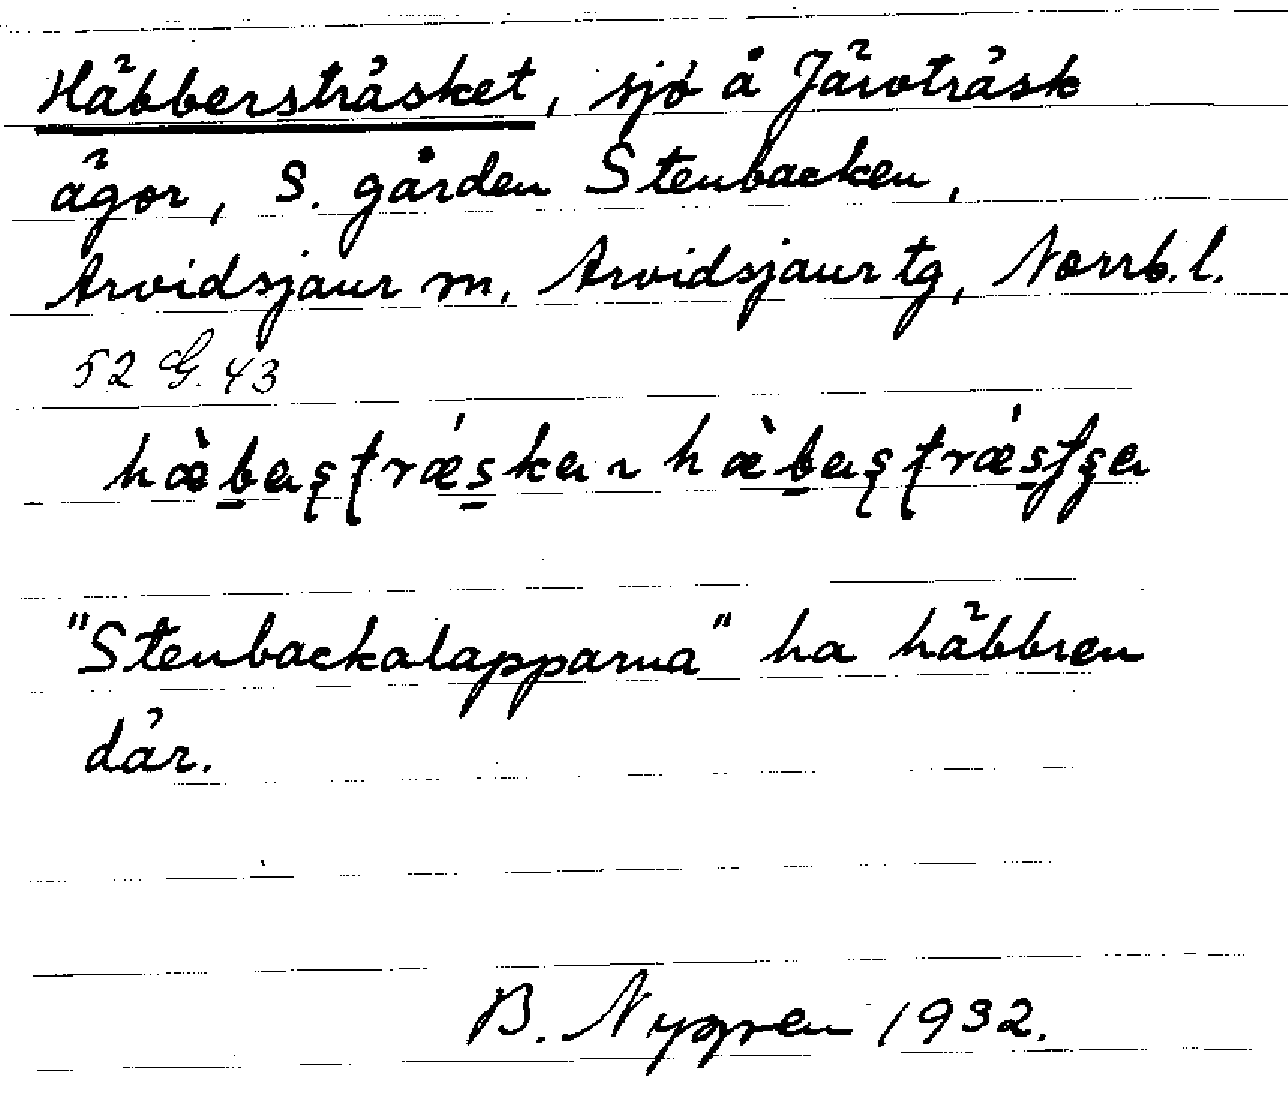 Häbbersträsket, sjö å Järvträsk
ägor, S. gården Stenbacken,
Arvidsjaur sn, Arvidsjaur tg, Norrb. l.
52 G. 43
"Stenbackalapparna" ha häbbren
där.
B. Nygren 1932.